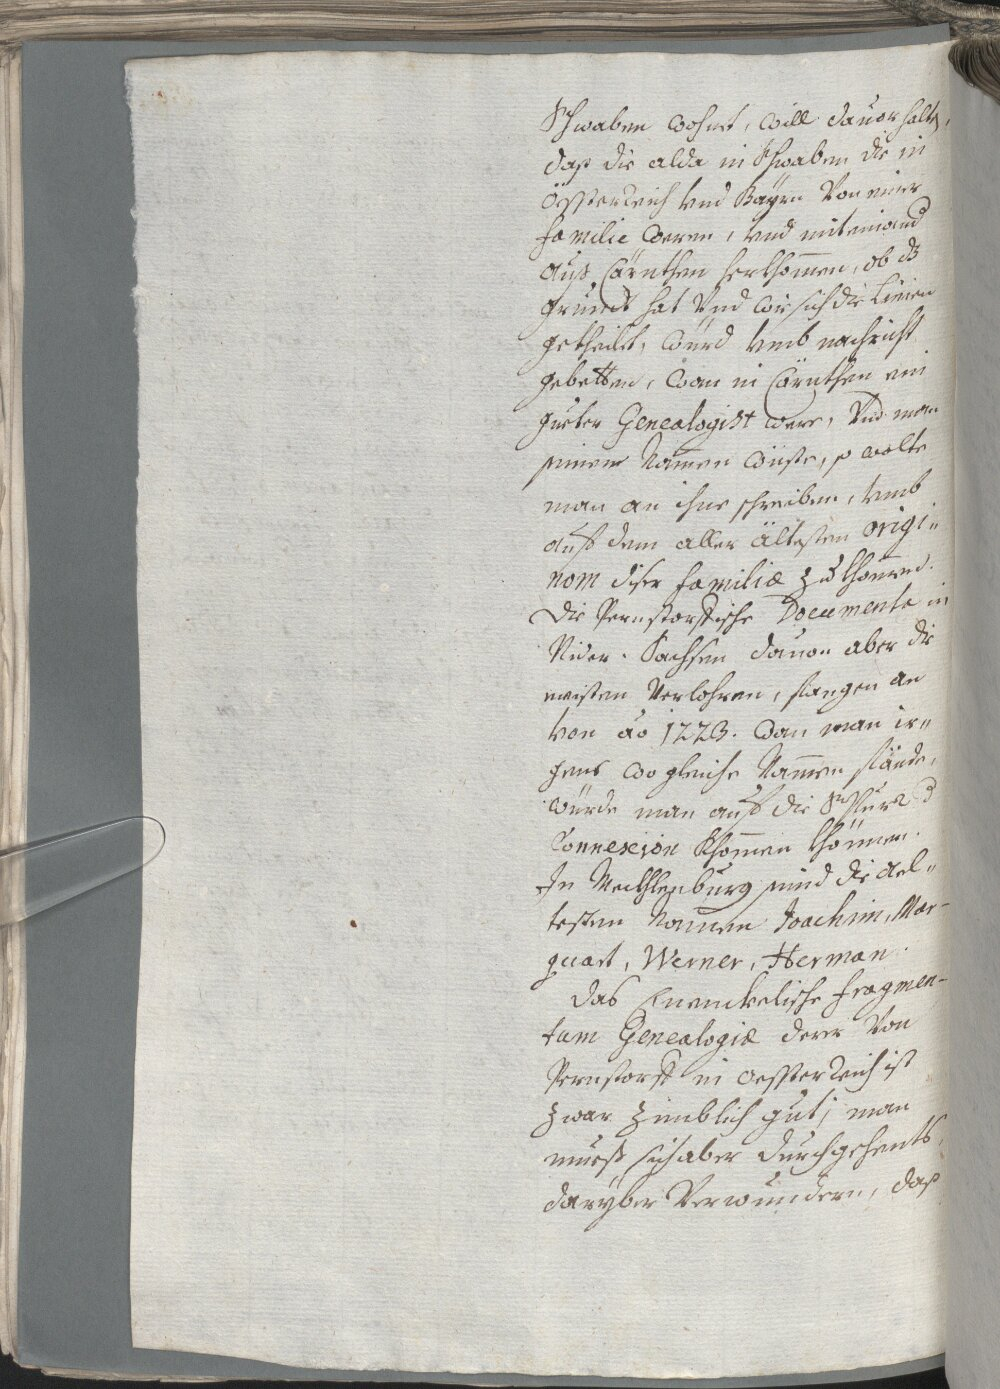 Schwaben wohnet, will dauor halten,
daß die alda in Schwaben die in
Össterreich vnd Bayrn von einer
familie weren, vnd miteinand
aus Cärnthen herkhommen, ob dß
grundt hat vnd wie sich die Linien
getheilet, würd vmb nachricht
gebetten, wan in Cärnthen ein
gueter Genealogist were, vnd man
seinen Namen wüste, so wolte
man an ihne schreiben, vmb
auf dem aller ältesten origi-
nom diser familiæ zu khommen.
Die Pernstorffische Documenta in
Nider-Sachsen dauon aber die
meisten verlohren, fangen an
von ao 1223. wan man ir-
gens wo gleiche Nammen fände,
würde man auf die
Connexion khommen khönnen.
In Mechlenburg seind die äel-
testen Nammen Joachim, Mar-
quart, Werner, Herman.
Das Enenckelische fragmen-
tum Genealogiæ derer von
Pernstorff in Oessterreich ist
zwar zimblich gut; man
mueß sich aber durchgehents
daryber verwundern, daß